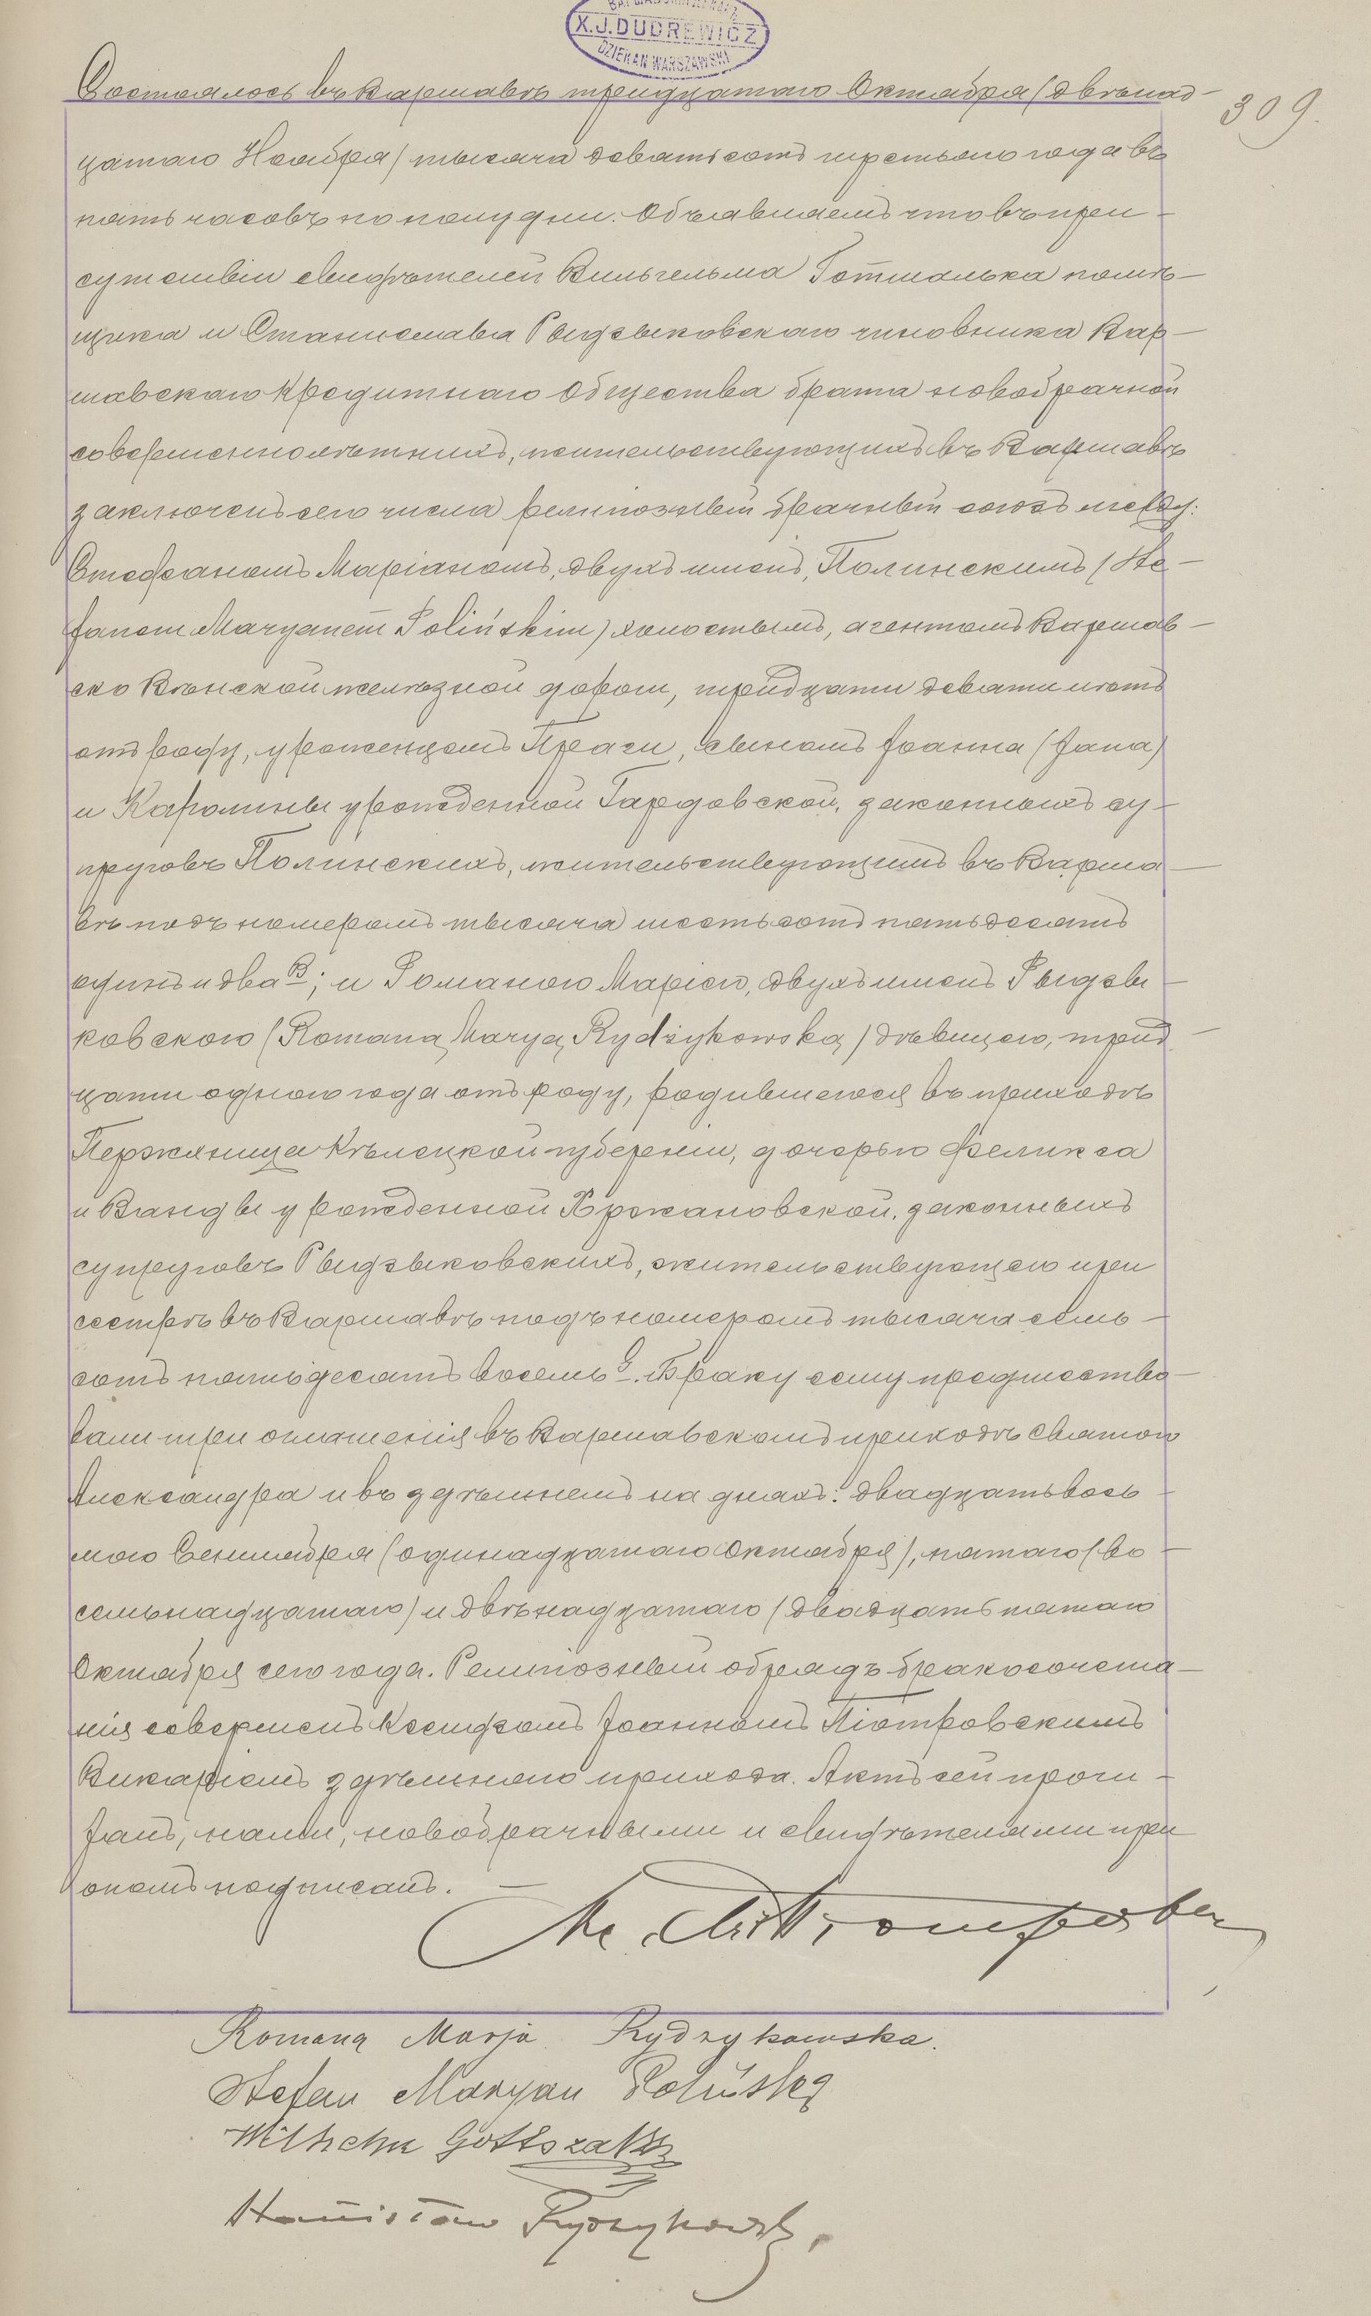 X.J.DUDREWICZ
DZIEKAN WARSZAWSKI
Состоялось въ Варшавѣ тридцатаго Октября (двѣнад-
309.
цатаго Ноября) тысяча девятьсотъ третьяго года въ
пять часовъ по полудни. Объявляемъ что въ при-
сутствіи свидѣтелей Вильгельма Готшалька помѣ-
щика и Станислава Рыдзыковскаго чиновника Вар-
шавскаго Кредитнаго Общества брата новобрачной
совершеннолѣтнихъ, жительствующихъ въ Варшавѣ
заключенъ сего числа религіозный брачный союзъ между:
Стефаномъ Маріаномъ, двухъ именъ, Полинскимъ (Ste-
fanem Maryanem Polińskim) холостымъ, агентомъ Варшав-
ско Вѣнской желѣзной дороги, тридцати девяти лѣтъ
отъ роду, уроженцемъ Праги, сыномъ Іоанна (Jana)
и Каролины урожденной Гардовской, законныхъ су-
пруговъ Полинскихъ, жительствующимъ въ Варша-
вѣ подъ номеромъ тысяча шестьсотъ пятьдесятъ
одинъ и два В; и Романою Маріею, двухъ именъ Рыдзы-
ковскою (Romaną Maryą Rydzykowską) дѣвицею, трид-
цати одного года отъ роду, родившеюся въ приходѣ
Пержхница Кѣлецкой губерніи, дочерью Феликса
и Ванды урожденной Хржановской, законныхъ
супруговъ Рыдзыковскихъ, жительствующею при
сестрѣ въ Варшавѣ подъ номеромъ тысяча семь-
сотъ пятьдесятъ восемь. Браку сему предшество-
вали три оглашенія въ Варшавскомъ приходѣ Святого
Александра и въ здѣшнемъ на дняхъ: двадцать вось-
мого Сентября (одинадцатаго Октября), пятаго (во-
семьнадцатаго) и двѣнадцатаго (двадцать пятаго
Октября сего года. Религіозный обрядъ бракосочета-
нія совершенъ Ксендзомъ Іоанномъ Піотровскимъ
Викаріемъ здѣшняго прихода. Актъ сей прочи-
танъ, нами, новобрачными и свидѣтелями при
ономъ подписанъ. —
Romana Marja Rydzykowska.
Stefan Maryan Poliński
Wilhelm Gottszalk
Stanisław Rydzykowski